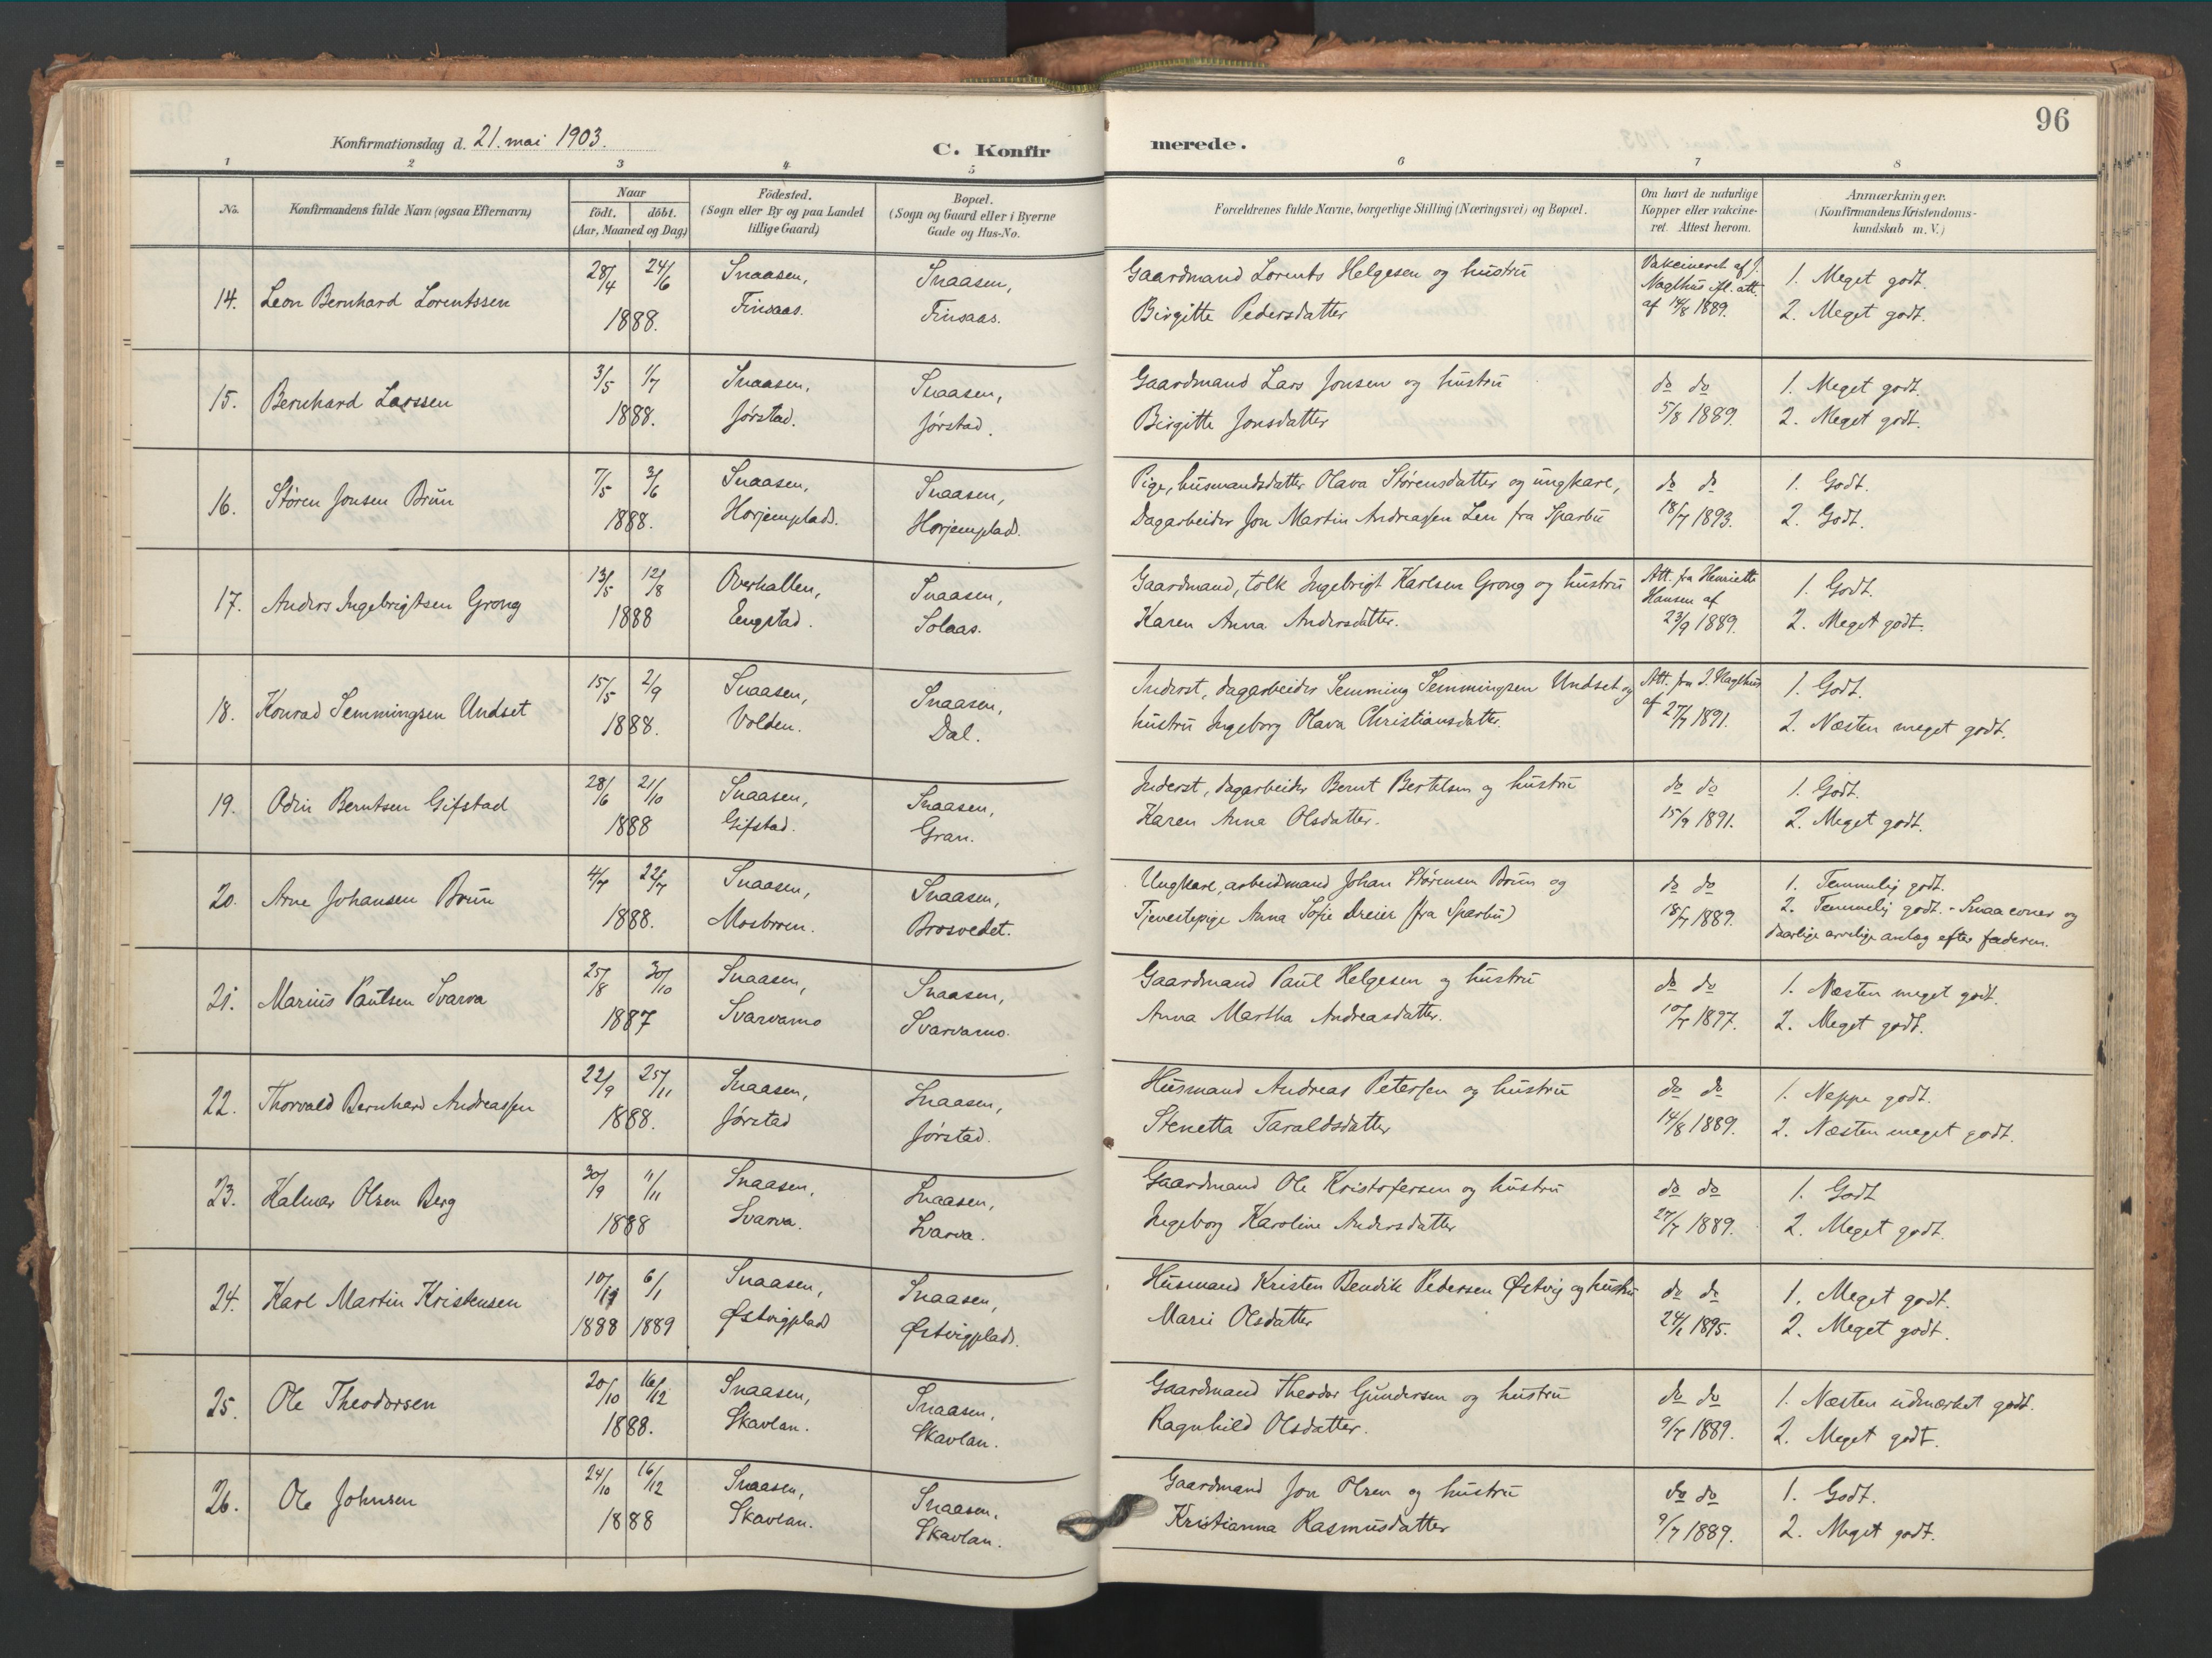 96
Konfirmationsdag d. 21. mai 1903.
C. Konfirmerede.
1 2 3 4 5 6 7 8
No.
Konfirmandens fulde Navn (ogsaa Efternavn)
Naar
födt. döbt.
(Aar, Maaned og Dag)
Födested.
(Sogn eller By og paa Landet
tillige Gaard)
Bopæl.
(Sogn og Gaard eller i Byerne
Gade og Hus-No.
Forældrenes fulde Navne, borgerlige Stilling (Næringsvei) og Bopæl.
Om havt de naturlige
Kopper eller vakcine-
ret. Attest herom.
Anmærkninger.
(Konfirmandens Kristendoms-
kundskab m. V.)
14. Leon Bernhard Lorentssen
28/4 24/6
1888.
Snaasen,
Finsaas.
Snaasen,
Finsaas.
Gaardmand Lorents Helgesen og hustru
Birgitte Pedersdatter
Vakcineret af J.
Nagthus ifl. att.
af 14/8 1889.
1. Meget godt.
2. Meget godt.
15. Bernhard Larssen
3/5 1/7
1888.
Snaasen,
Jørstad.
Snaasen,
Jørstad.
Gaardmand Lars Jonsen og hustru
Birgitte Jonsdatter
do do
5/8 1889.
1. Meget godt.
2. Meget godt.
16. Støren Jonsen Brun
7/5 3/6
1888.
Snaasen,
Horjemplads.
Snaasen,
Horjemplads.
Pige, husmandsdatter Olava Størensdatter og ungkarl,
Dagarbeider Jon Martin Andreassen Len fra Sparbu
do do
18/7 1893.
1. Godt.
2. Godt.
17. Anders Ingebrigtsen Grong
13/5 12/8
1888
Overhallen,
Engstad.
Snaasen,
Solaas.
Gaardmand, tolk Ingebrigt Karlsen Grong og hustru
Karen Anna Andersdatter.
Att. fra Henriette
Hansen af
23/9 1889.
1. Godt.
2. Meget godt.
18. Konrad Semmingsen Undset
15/5 2/9
1888.
Snaasen,
Volden.
Snaasen,
Dal.
Inderst, dagarbeider Semming Semmingsen Undset og
hustru Ingeborg Olava Christiansdatter.
Att. fra J. Nagthus
af 27/7 1891.
1. Godt.
2. Næsten meget godt.
19. Odin Berntsen Gifstad
28/6 21/10
1888
Snaasen,
Gifstad.
Snaasen,
Gran.
Inderst, dagarbeider Bernt Bertelsen og hustru
Karen Anna Olsdatter.
do do
15/9 1891.
1. Godt.
2. Meget godt.
20. Arne Johansen Brun
4/7 22/7
1888.
Snaasen,
Mosbroen.
Snaasen,
Brosvedet.
Ungkarl, arbeidmand Johan Størensen Brun og
Tjenestepige Anna Sofie Dreier (fra Sparbu)
do do
18/7 1889.
1. Temmelig godt.
2. Temmelig godt. - Smaa evner og
daarlige arvelige anlæg efter faderen.
21. Marius Paulsen Svarva
25/8 30/10
1887
Snaasen,
Svarvamo
Snaasen,
Svarvamo.
Gaardmand Paul Helgesen og hustru
Anna Martha Andreasdatter.
do do
10/7 1897.
1. Næsten meget godt.
2. Meget godt.
22. Thorvald Bernhard Andreassen
22/9 25/11
1888.
Snaasen,
Jørstad
Snaasen,
Jørstad.
Husmand Andreas Petersen og hustru
Stenetta Taraldsdatter
do do
14/8 1889.
1. Neppe godt.
2. Næsten meget godt.
23. Halmar Olsen Berg
30/9 11/11
1888
Snaasen,
Svarva.
Snaasen,
Svarva.
Gaardmand Ole Kristofersen og hustru
Ingeborg Karoline Andersdatter
do do
27/7 1889.
1. Godt
2. Meget godt.
24. Karl Martin Kristensen
10/11 6/1
1888 1889
Snaasen,
Østvigplads
Snaasen,
Østvigplads.
Husmand Kristen Bendik Pedersen Østvig og hustru
Marie Olsdatter
do do
24/1 1895.
1. Meget godt.
2. Meget godt.
25. Ole Theodorsen
20/10 16/12
1888.
Snaasen,
Skavlan.
Snaasen,
Skavlan.
Gaardmand Theodor Gundersen og hustru
Ragnhild Olsdatter.
do do
9/7 1889.
1. Næsten udmærket godt.
2. Meget godt.
26. Ole Johnsen
24/10 16/12
1888
Snaasen,
Skavlan.
Snaasen,
Skavlan.
Gaardmand Jon Olsen og hustru
Kristianna Rasmusdatter
do do
9/7 1889.
1. Godt.
2. Meget godt.